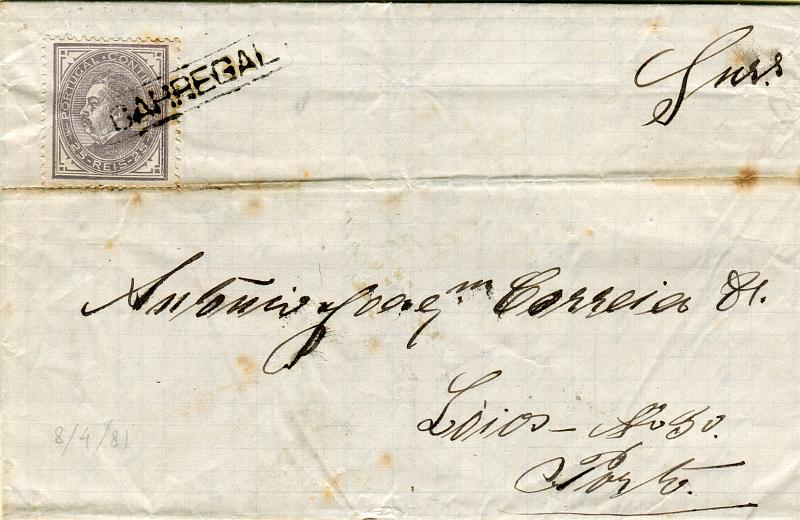 PORTUGAL · CONTINENTE
25 - REIS - 25
CARREGAL
Snrs
António Joaqm Correia &.
Loios - No 30.
Porto.
8/4/81